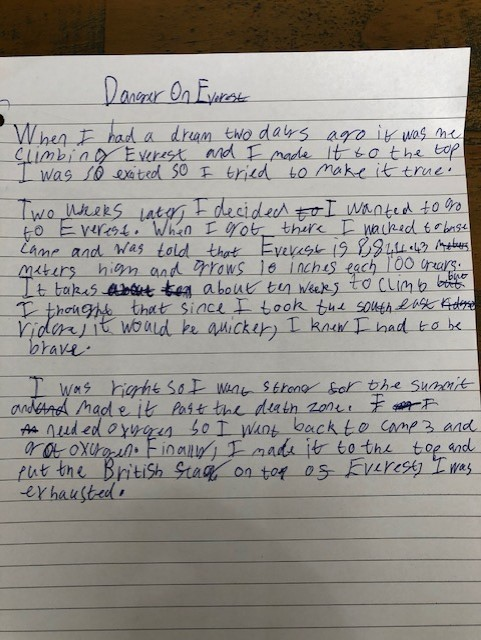 Danger On Everest
When I had a dream two days ago it was me
climbing Everest and I made it to the top
I was so exited so I tried to make it true.
Two weeks later, I decided to I wanted to go
to Everest. When I got there I walked to base
camp and was told that Everest is 8,844.43
meters high and grows 10 inches each 100 years.
It takes about ten about ten weeks to climb but
I thought that since I took the south east
ridge, it would be quicker, I knew I had to be
brave.
I was right so I went strong for the summit
and made it past the death zone. I
needed oxygen so I went back to camp 3 and
got oxygen. Finally, I made it to the top and
put the British flag on top of Everest, I was
exhausted.